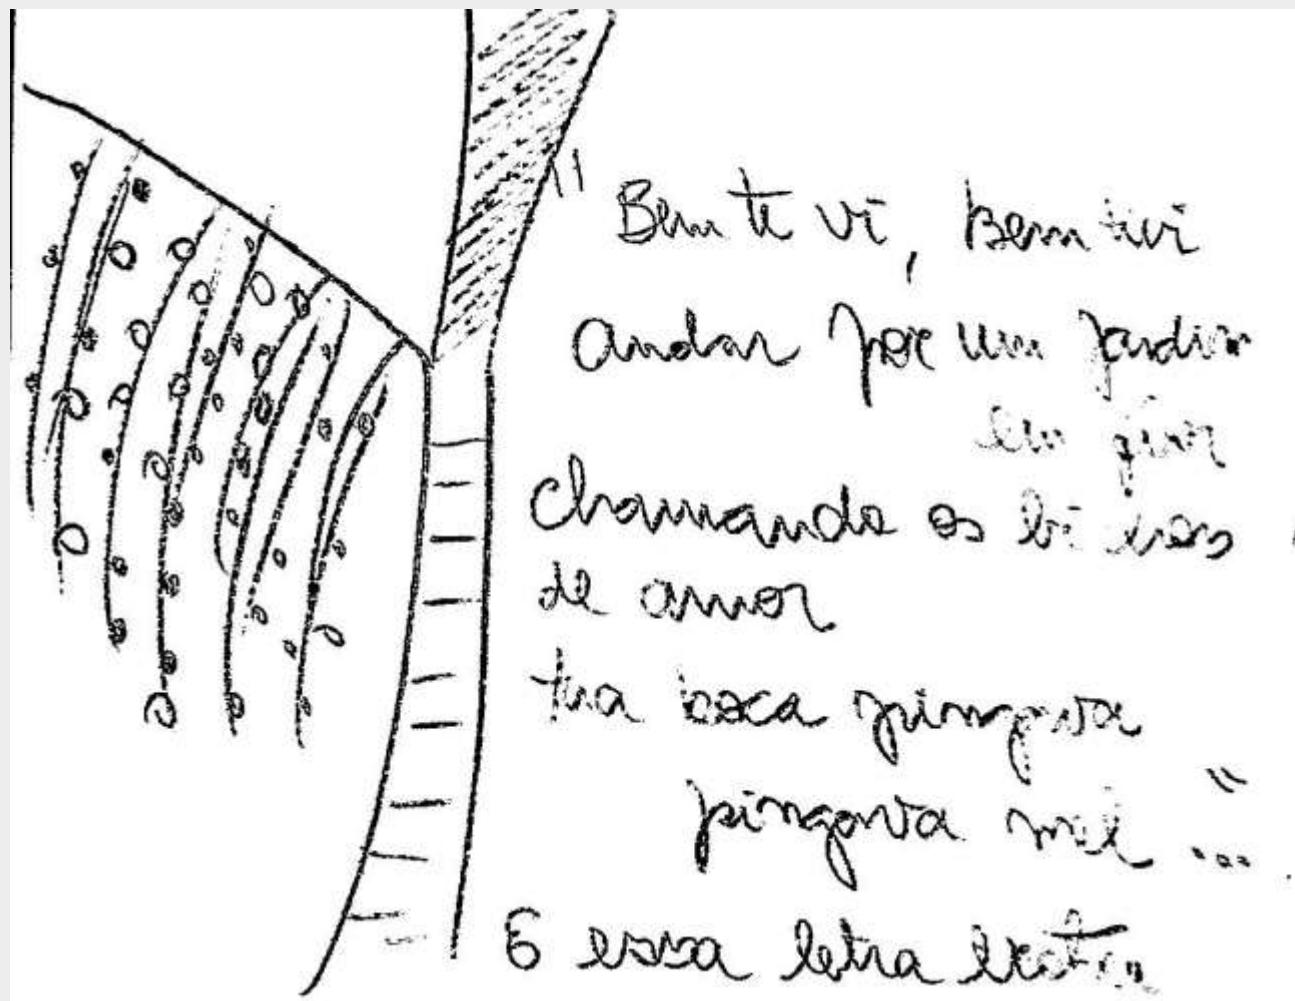 " Bem te vi, bem te vi
andar por um jardim
em flor
chamando os bichos
de amor
tua boca pingava
pingava mel ..."
E essa letra